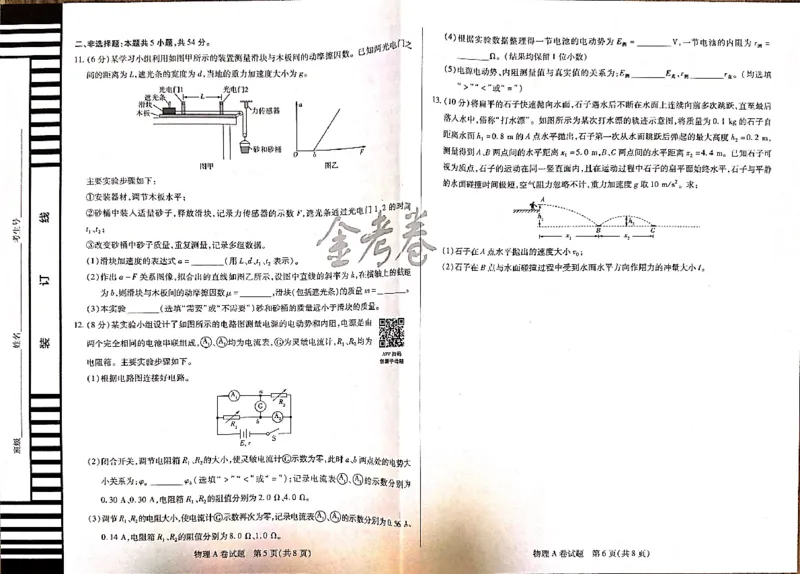 考生号
姓名
班级
线
订
装
二、非选择题:本题共5小题,共54分。
11.(6分)某学习小组利用如图甲所示的装置测量滑块与木板间的动摩擦因数。已知两光电门之
间的距离为L,遮光条的宽度为d,当地的重力加速度大小为g。
光电门1 光电门2
遮光条
滑块
木板
L
力传感器
砂和砂桶
图甲
a
O b F
图乙
主要实验步骤如下:
①安装器材,调节木板水平;
②砂桶中装入适量砂子,释放滑块,记录力传感器的示数F,遮光条通过光电门1、2的时间
t₁、t₂;
③改变砂桶中砂子质量,重复测量,记录多组数据。
(1)滑块加速度的表达式a=______(用L、d、t₁、t₂表示)。
(2)作出a-F关系图像,拟合出的直线如图乙所示,设图中直线的斜率为k,在横轴上的截距
为b,则滑块与木板间的动摩擦因数μ=______,滑块(包括遮光条)的质量m=______。
(3)本实验______(选填“需要”或“不需要”)砂和砂桶的质量远小于滑块的质量。
12.(8分)某实验小组设计了如图所示的电路图测量电源的电动势和内阻,电源是由
两个完全相同的电池串联组成,Ⓐ₁、Ⓐ₂均为电流表,Ⓖ为灵敏电流计,R₁、R₂均为
电阻箱。主要实验步骤如下。
APP扫码
(1)根据电路图连接好电路。
A₁ a R₂
G
R₁ b A₂
E,r S
(2)闭合开关,调节电阻箱R₁、R₂的大小,使灵敏电流计Ⓖ示数为零,此时a、b两点处的电势大
小关系为:φₐ______φ_b(选填“>”“<”或“=”);记录电流表Ⓐ₁、Ⓐ₂的示数分别为
0.30 A、0.30 A,电阻箱R₁、R₂的阻值分别为2.0 Ω、4.0 Ω。
(3)调节R₁、R₂的电阻大小,使电流计Ⓖ示数再次为零,记录电流表Ⓐ₁、Ⓐ₂的示数分别为0.56 A、
0.14 A,电阻箱R₁、R₂的阻值分别为8.0 Ω、1.0 Ω。
物理A卷试题 第5页(共8页)
(4)根据实验数据整理得一节电池的电动势为E测=______V,一节电池的内阻为r测=
______Ω。(结果均保留1位小数)
(5)电源电动势、内阻测量值与真实值的关系为:E测______E真,r测______r真。(均选填
“>”“<”或“=”)
13.(10分)将扁平的石子快速抛向水面,石子遇水后不断在水面上连续向前多次跳跃,直至最后
落入水中,俗称“打水漂”。如图所示为某次打水漂的轨迹示意图,将质量为0.1 kg的石子自
距离水面h₁=0.8 m的A点水平抛出,石子第一次从水面跳跃后弹起的最大高度h₂=0.2 m,
测量得到A、B两点间的水平距离x₁=5.0 m,B、C两点间的水平距离x₂=4.4 m。已知石子可
视为质点,石子的运动在同一竖直面内,且在运动过程中石子的扁平面始终水平,石子与平静
的水面碰撞时间极短,空气阻力忽略不计,重力加速度g取10 m/s²。求:
A
h₁ h₂
B C
x₁ x₂
(1)石子在A点水平抛出的速度大小v₀;
(2)石子在B点与水面碰撞过程中受到水面水平方向作用力的冲量大小I。
物理A卷试题 第6页(共8页)
金考卷